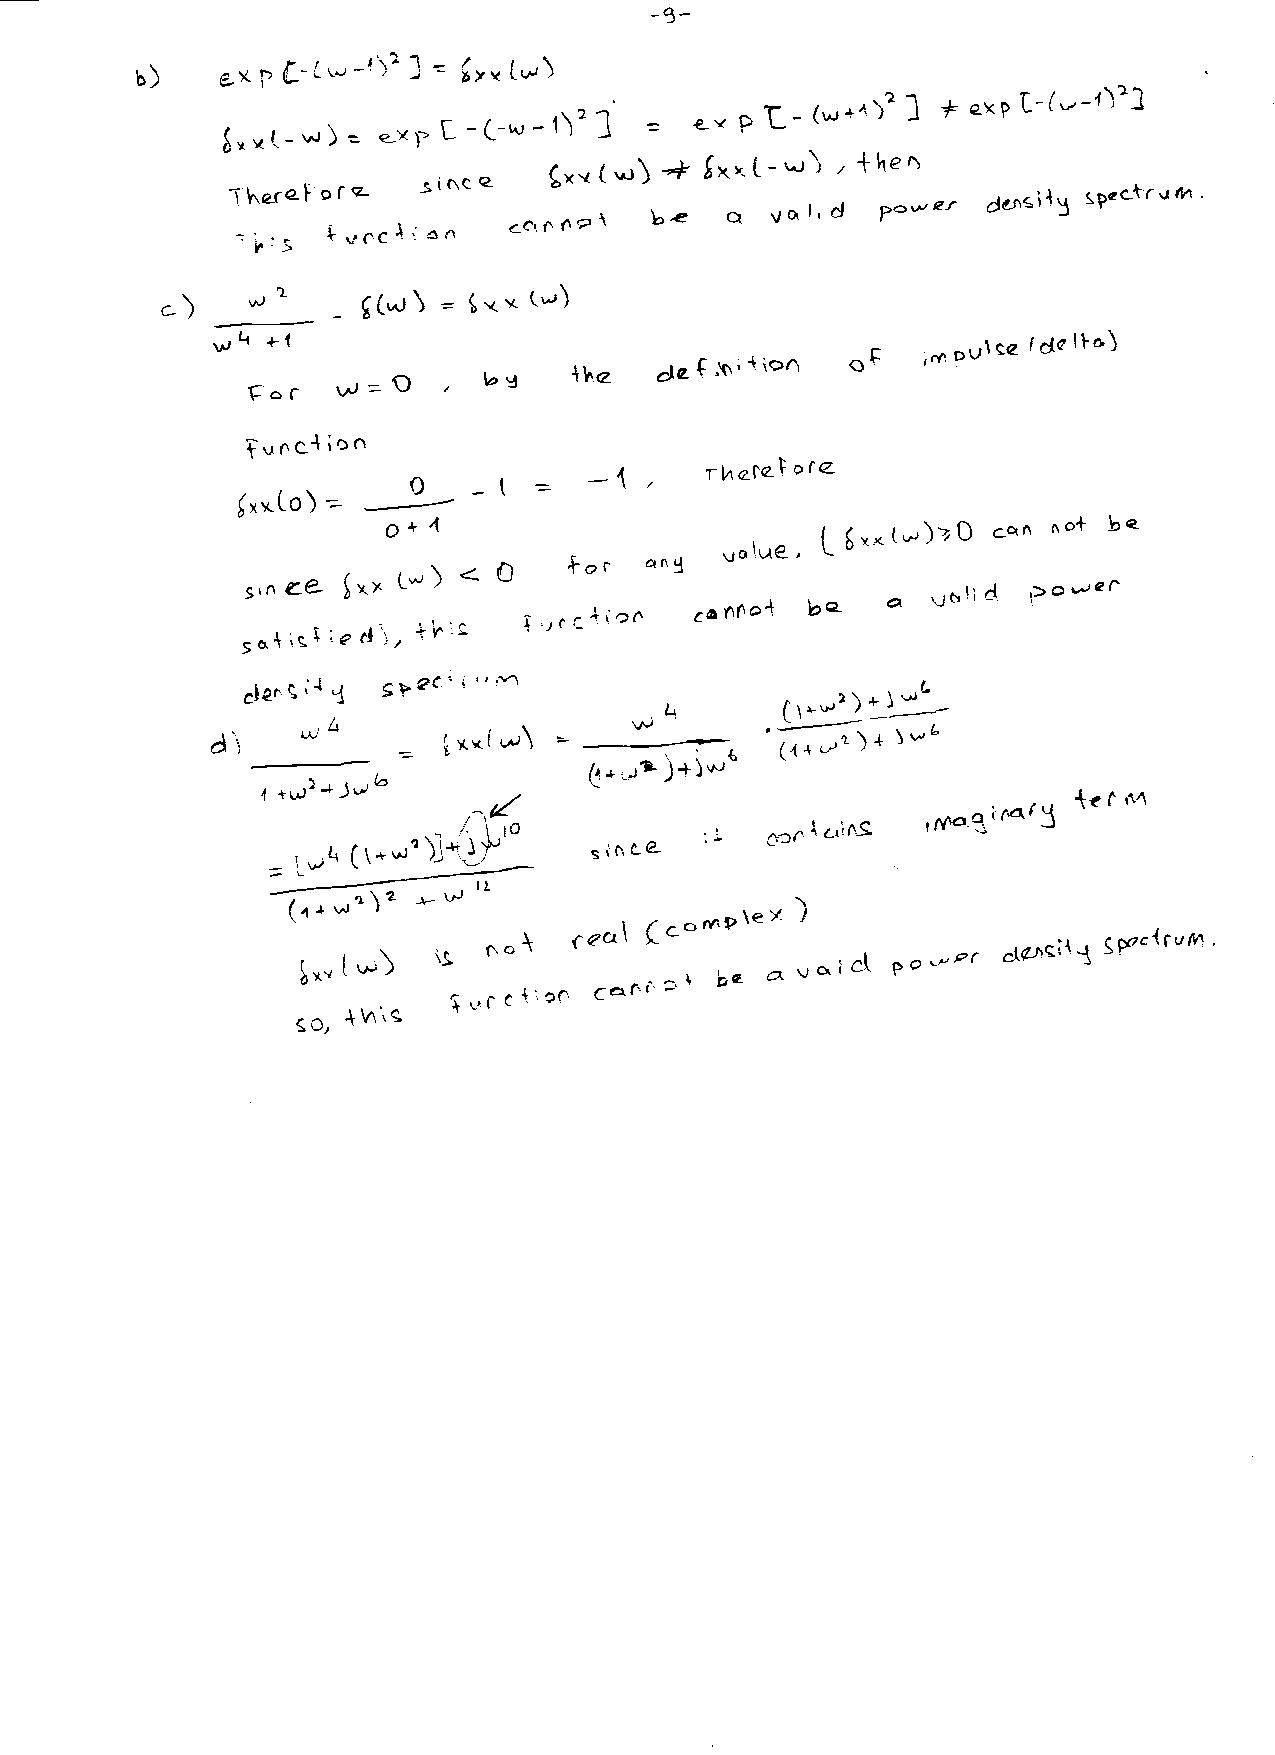 -9-
b) exp[-(w-1)²] = Sxx(w)
Sxx(-w) = exp[-(-w-1)²] = exp[-(w+1)²] ≠ exp[-(w-1)²]
Therefore since Sxx(w) ≠ Sxx(-w), then
This function cannot be a valid power density spectrum.
c) w²/(w⁴+1) - δ(w) = Sxx(w)
For w=0, by the definition of impulse(delta)
Function
Sxx(0) = 0/(0+1) - 1 = -1, Therefore
since Sxx(w) < 0 for any value. (Sxx(w)≥0 can not be
satisfied), this function cannot be a valid power
density spectrum
d) w⁴/(1+w²+jw⁶) = Sxx(w) = w⁴/((1+w²)+jw⁶) · ((1+w²)+jw⁶)/((1+w²)+jw⁶)
= [w⁴(1+w²)]+jw¹⁰/((1+w²)²+w¹²) since it contains imaginary term
Sxx(w) is not real (complex)
so, this function cannot be a vaid power density spectrum.